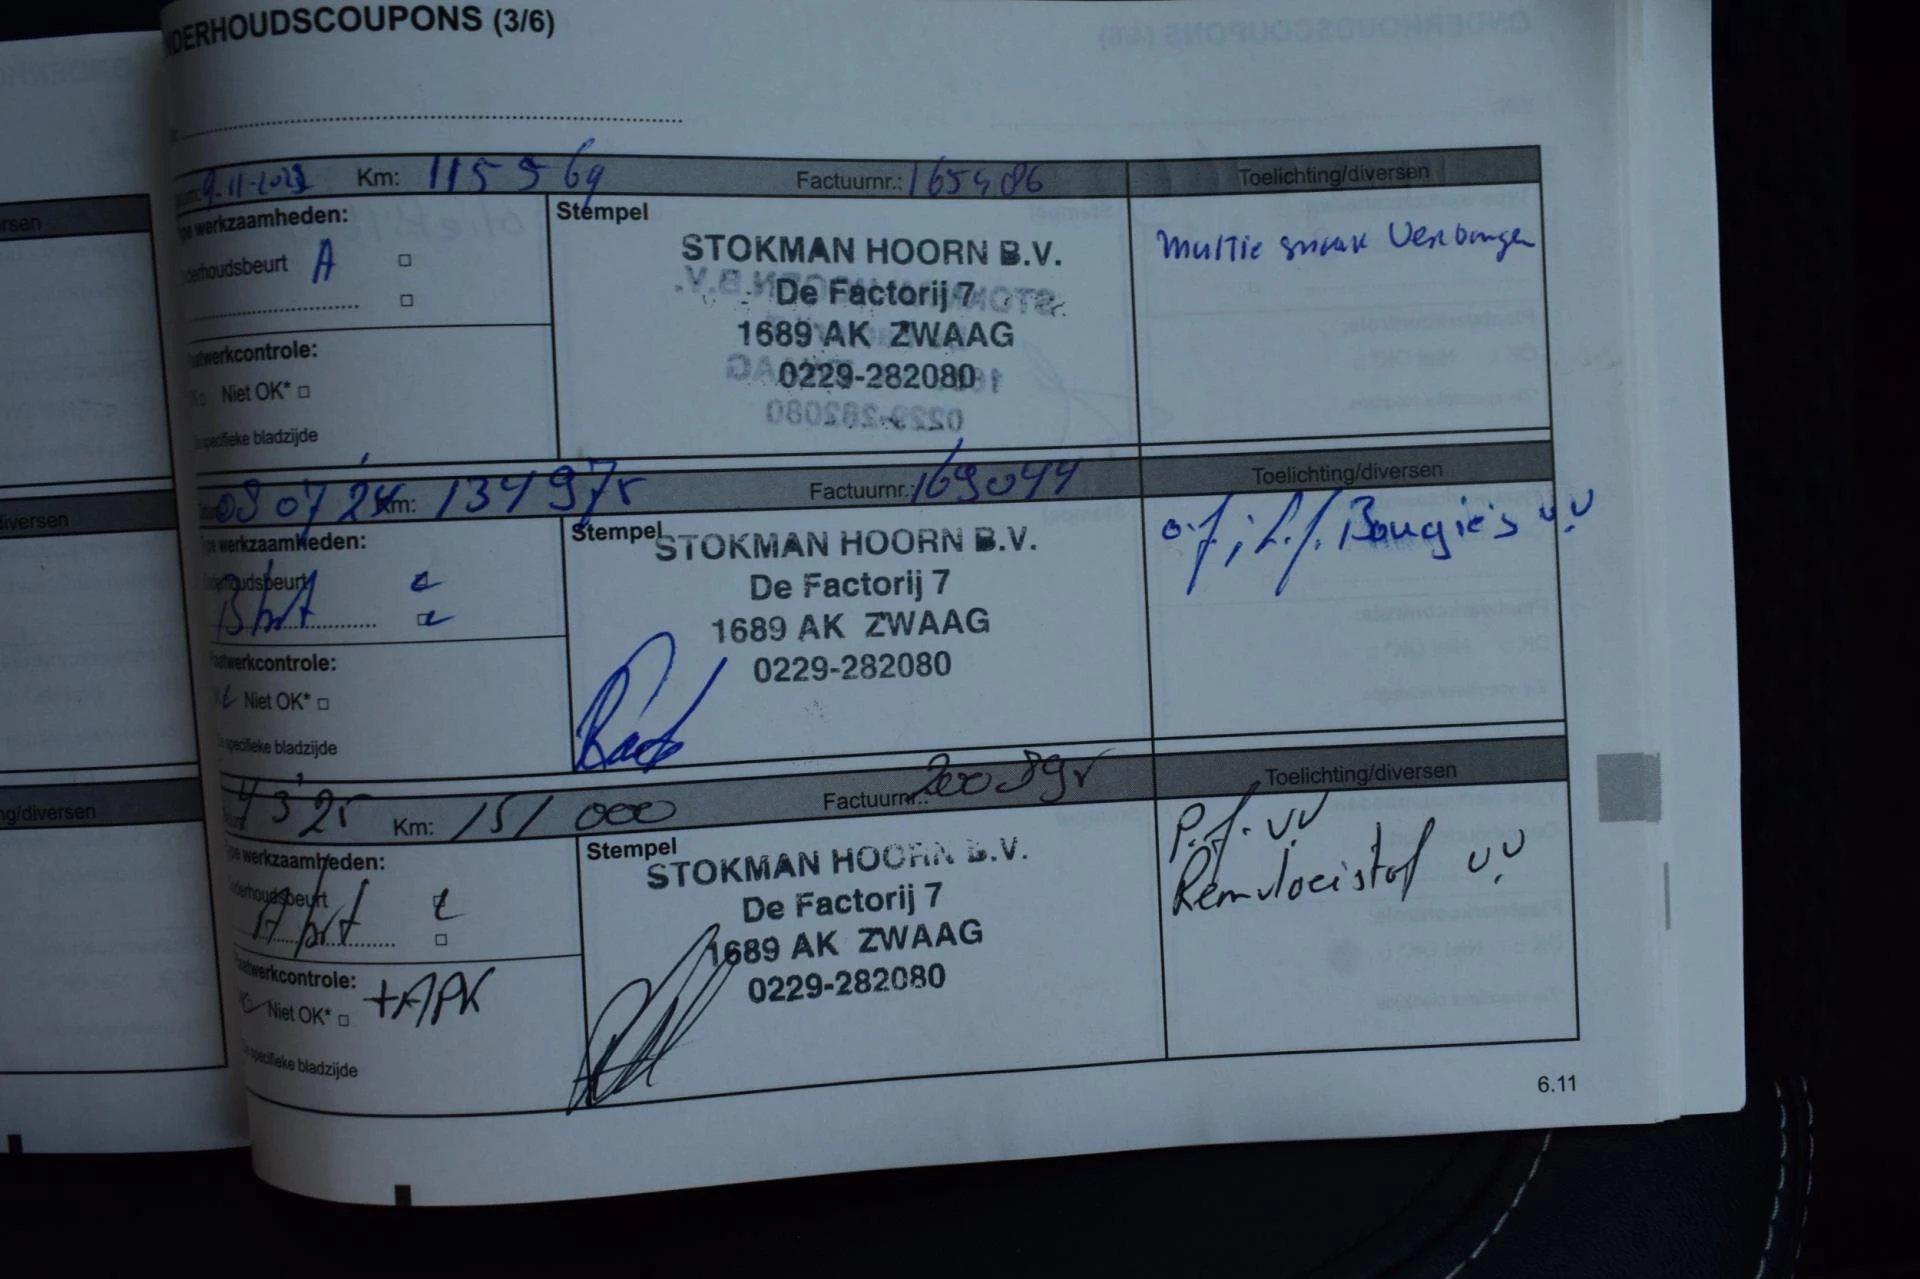 ONDERHOUDSCOUPONS (3/6)
9-11-2023 Km: 115569 Factuurnr.: 165486 Toelichting/diversen
Type werkzaamheden:
Onderhoudsbeurt A
Stempel
STOKMAN HOORN B.V.
De Factorij 7
1689 AK ZWAAG
0229-282080
Multie snaar Vervangen
Plaatwerkcontrole:
Niet OK*
specifieke bladzijde
08 07 24 Km: 134975 Factuurnr.: 169044 Toelichting/diversen
Type werkzaamheden:
Onderhoudsbeurt
B brt
Stempel
STOKMAN HOORN B.V.
De Factorij 7
1689 AK ZWAAG
0229-282080
o.f, l.f. Bougie's v.v
Plaatwerkcontrole:
Niet OK*
specifieke bladzijde
4 3 25 Km: 151 000 Factuurnr.: Toelichting/diversen
Type werkzaamheden:
Onderhoudsbeurt
A brt
Stempel
STOKMAN HOORN B.V.
De Factorij 7
1689 AK ZWAAG
0229-282080
P.f. v.v
Remvloeistof v.v
Plaatwerkcontrole:
Niet OK* +APK
specifieke bladzijde
6.11